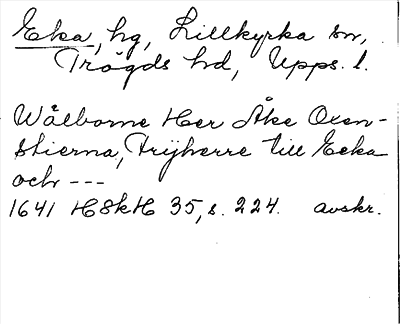 Eka, hg, Lillkyrka sn,
Trögds hd, Upps. l.
Wälborne Her Åke Oxen-
stierna, Frijherre till Ecka
och ---
1641 HSkH 35, s. 224. avskr.